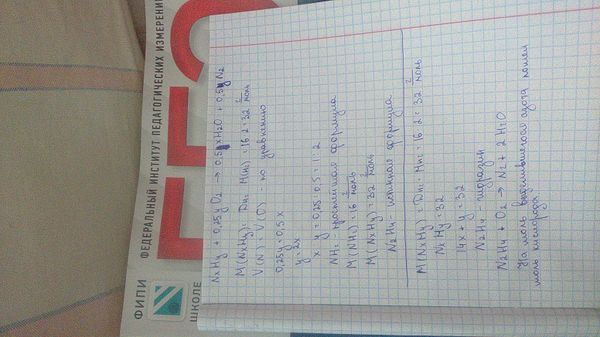 ФИПИ
ШКОЛЕ
ФЕДЕРАЛЬНЫЙ ИНСТИТУТ ПЕДАГОГИЧЕСКИХ ИЗМЕРЕНИ
ЕГЭ
NxHy + 0,25y O2 → 0.5 xH2O + 0,5y N2
M(NxHy) = DH2 · M(H2) = 16·2 = 32 г/моль
V(N) = V(O) - по уравнению
0,25y = 0,5x
y = 2x
x : y = 0,25 : 0,5 = 1 : 2
NH2 - простейшая формула
M(NH2) = 16 г/моль
M(NxHy) = 32 г/моль
N2H4 истинная формула
M(NxHy) = DH2 · MH2 = 16·2 = 32 г/моль
NxHy = 32
14x + y = 32
N2H4 гидразин
N2H4 + O2 → N2 + 2H2O
На моль выделившегося азота пошел
моль кислорода